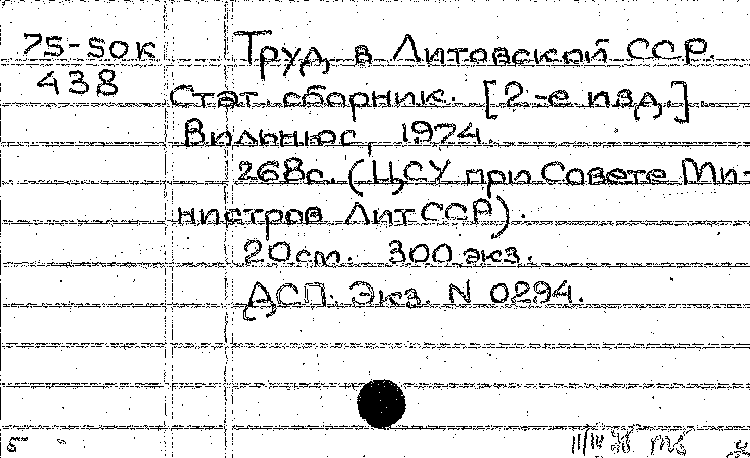 75-50к Труд в Литовской ССР.
438
Стат. сборник. [2-е изд.]
Вильнюс, 1974.
268с. (ЦСУ при Совете Ми-
нистров ЛитССР).
20см. 300 экз.
ДСП. Экз. N 0294.
Б